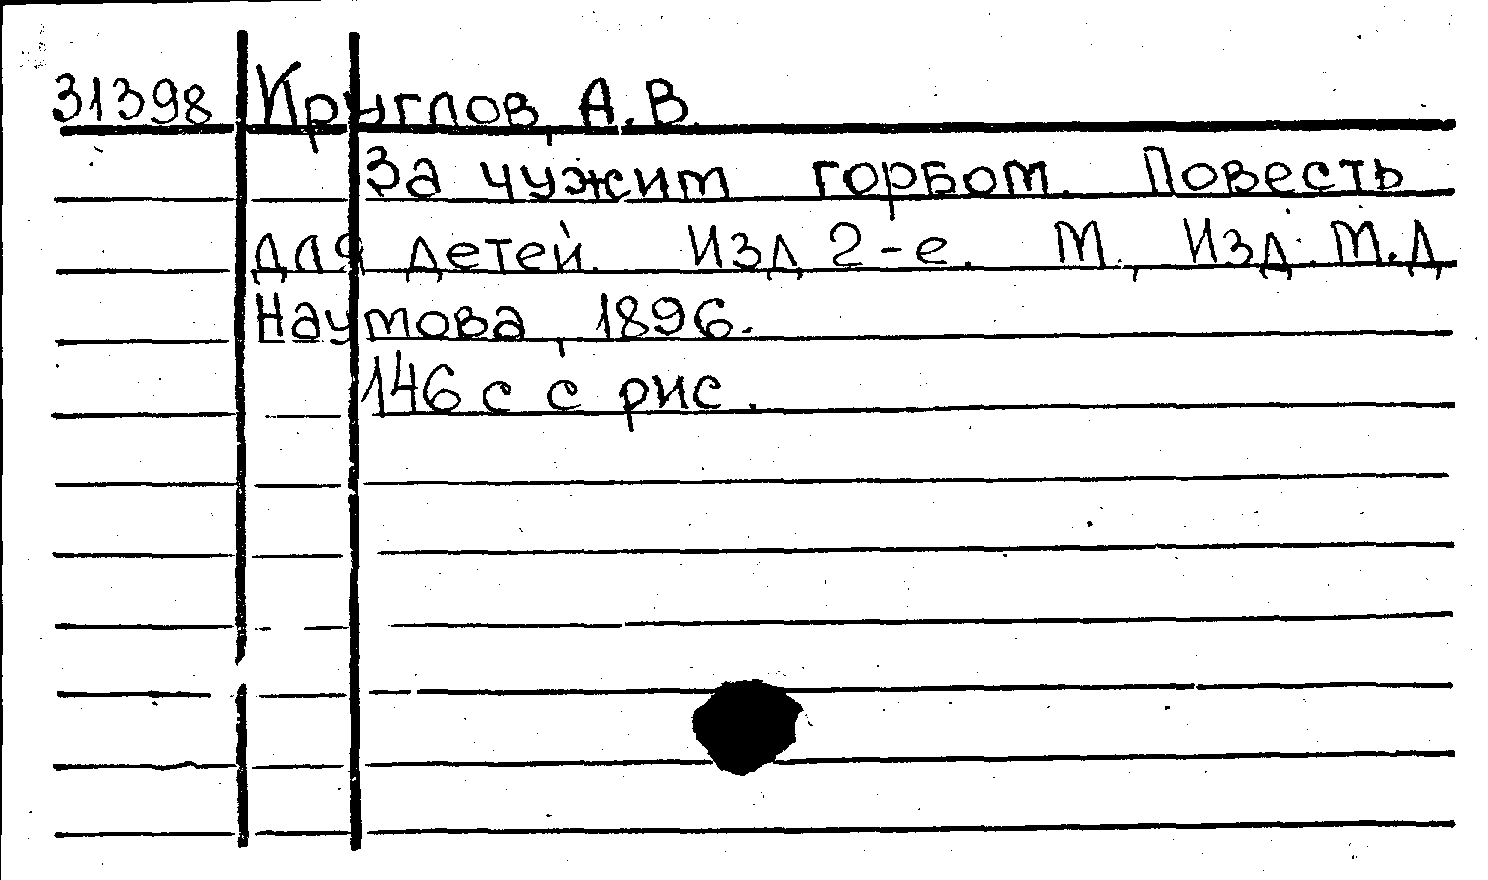 31398 Круглов, А.В.
За чужим горбом. Повесть
для детей. Изд 2-е. М., Изд. М.Д.
Наумова, 1896.
146 с с рис.